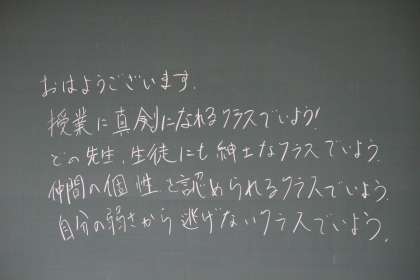 おはようございます.
授業に真剣になれるクラスでいよう!
どの先生、生徒にも紳士なクラスでいよう.
仲間の個性を認められるクラスでいよう.
自分の弱さから逃げないクラスでいよう.